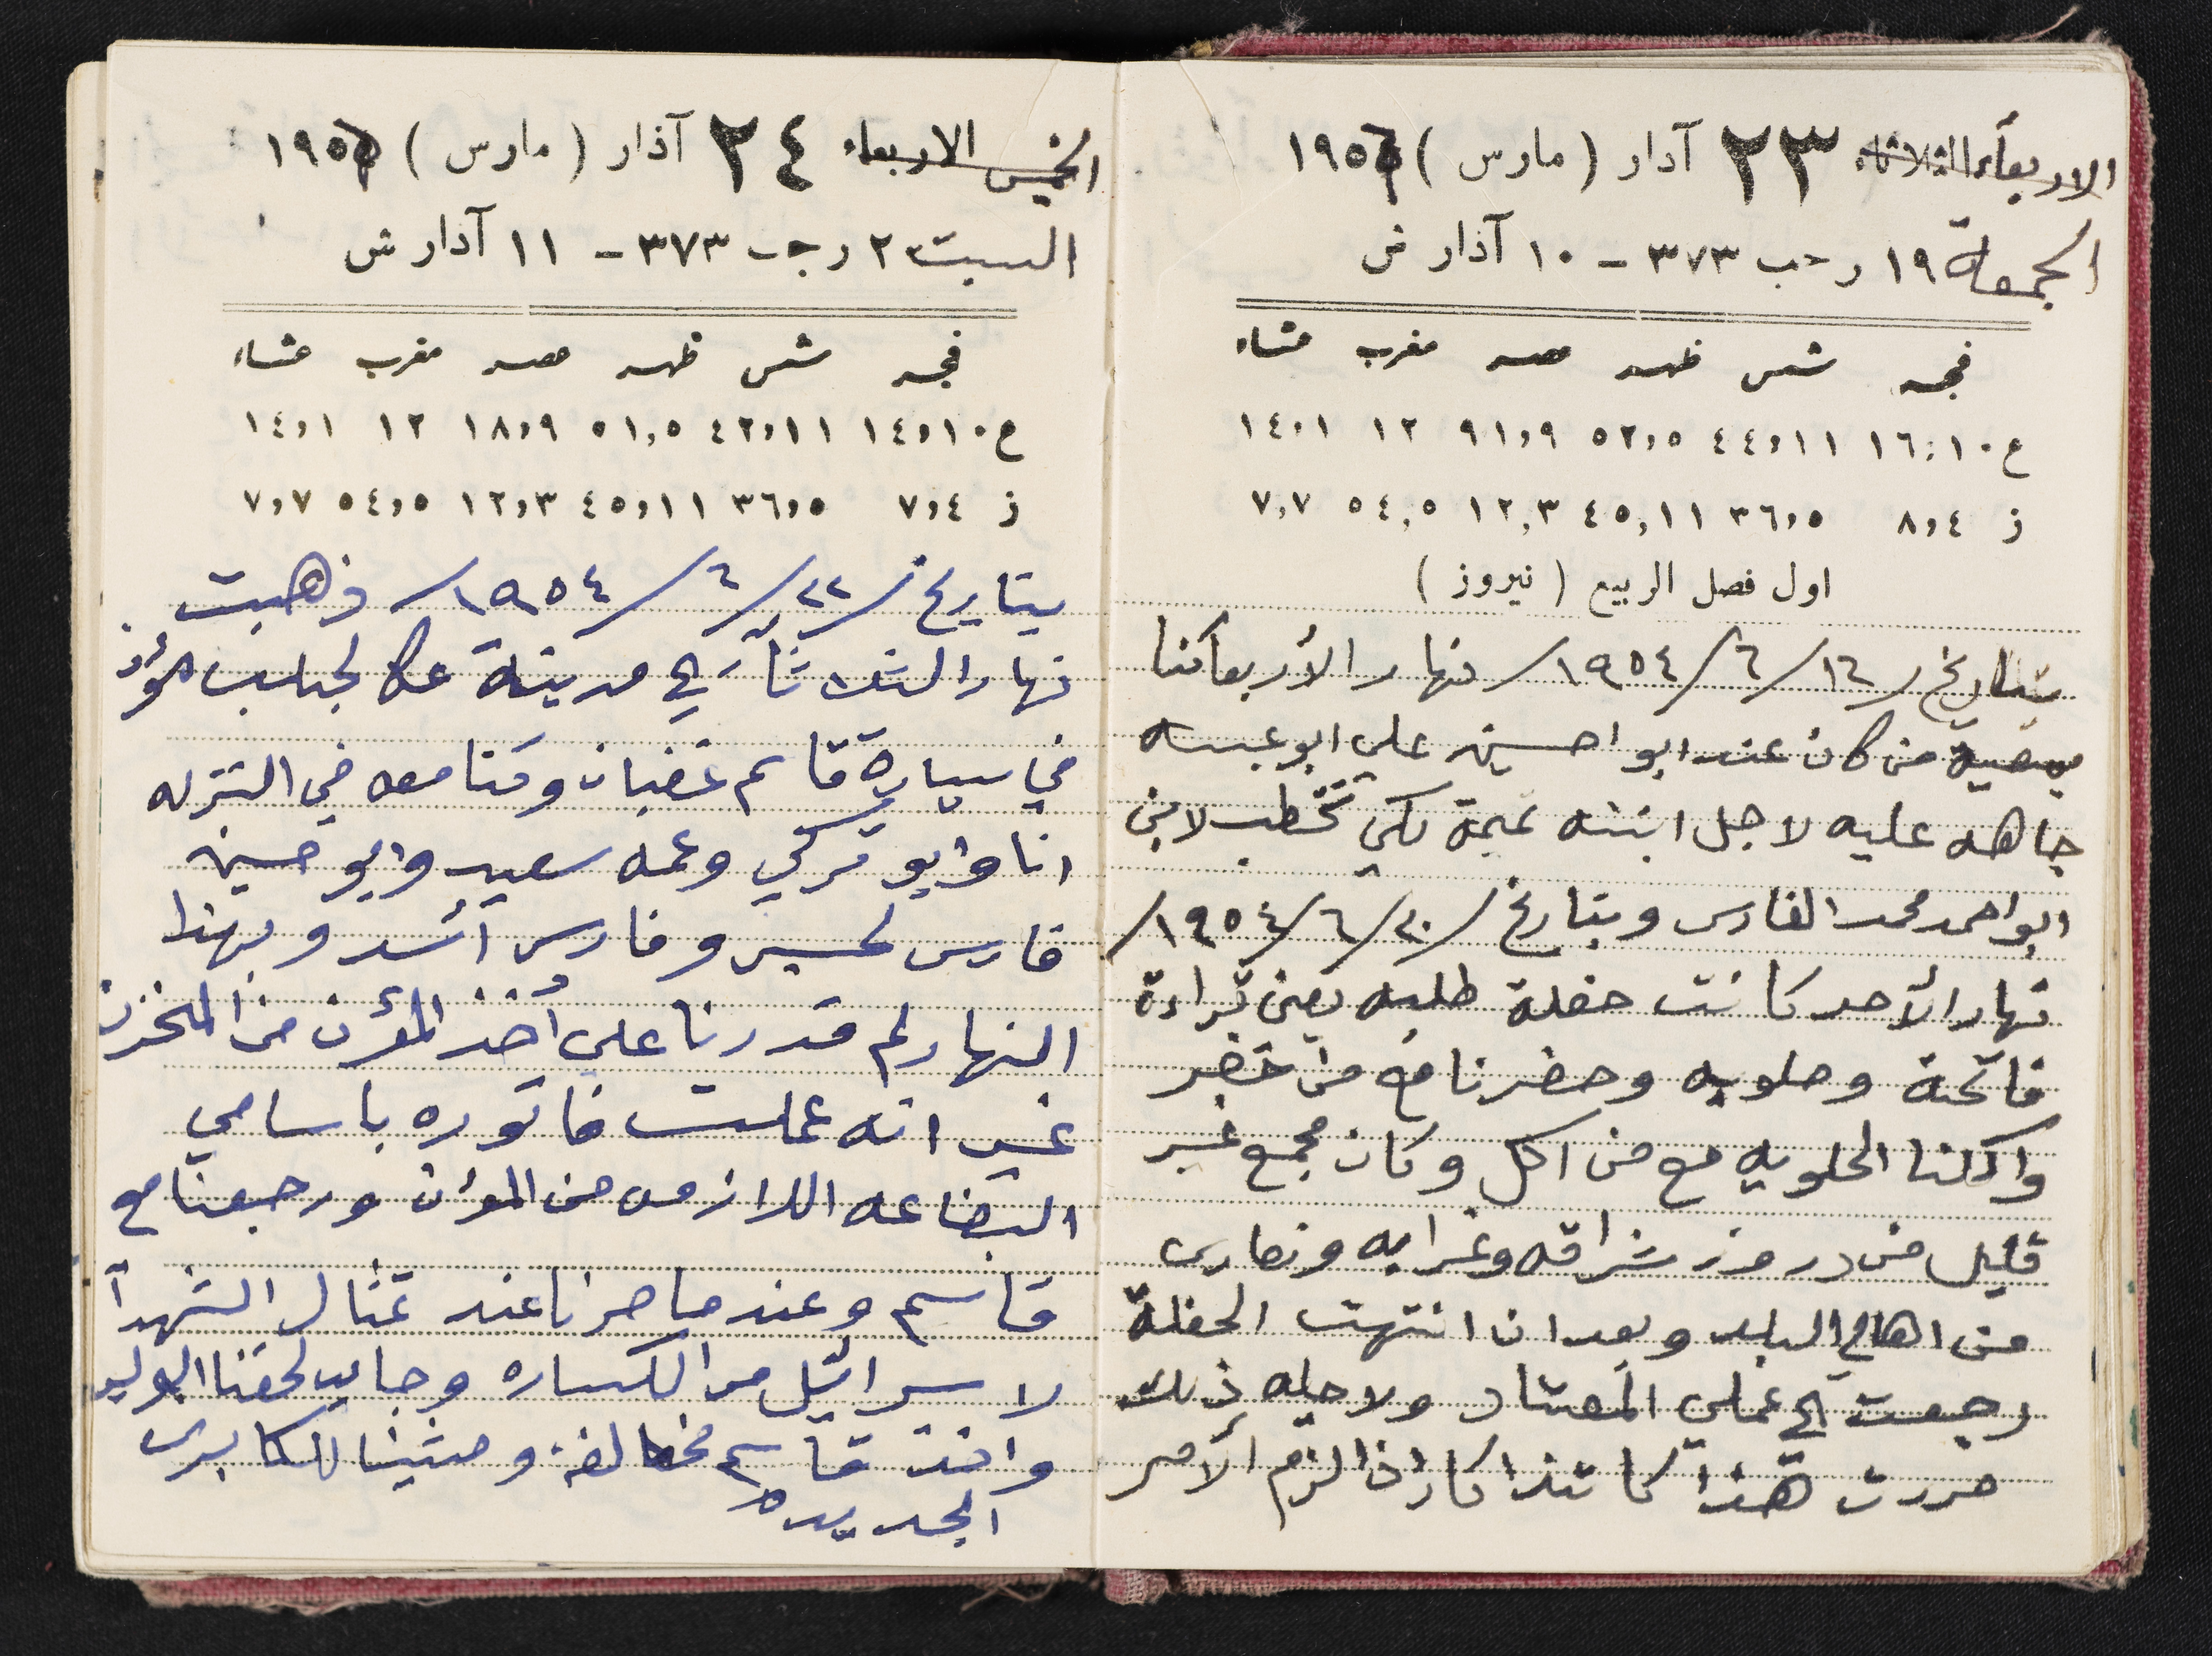 الاربعاء الثلاثاء ٢٣ آذار ( مارس ) ١٩٥٦
الجمعة ١٩ رجب ٣٧٣ - ١٠ آذار ش
فجر شمس ظهر عصر مغرب عشاء
ع ١٦:١٠ ٤٤,١١ ٥٢,٥ ٩١,٩ ١٢ ١٤,١
ز ٨,٤ ٣٦,٥ ٤٥,١١ ١٢,٣ ٥٤,٥ ٧,٧
اول فصل الربيع ( نيروز )
بتاريخ /١٦/٦/١٩٥٤/ نهار الأربعا كنا
بمعية من كان عند ابو احسين علي ابو عبسه
جاهه عليه لاجل ابنته نميمة لكي تخطب لابن
ابو احمد محمد الفارس وبتاريخ /٢٠/٦/١٩٥٤/
نهار الأحد كانت حفلة طلبه يعني قراءة
فاتحة وحلويه وحضرنا مع من حضر
واكلنا الحلويه مع من اكل وكان مجمع غير
قليل من دروز شراقه وغرابه ونصارى
من اهالي البلد وبعد ان انتهت الحفلة
رجعت الى عملي المعتاد ولاجله ذلك
حررت هذا كا تذكار اذا لزم الأمر
الخميس الاربعاء ٢٤ آذار ( مارس ) ١٩٥٦
السبت ٢٠ رجب ٣٧٣ - ١١ آذار ش
فجر شمس ظهر عصر مغرب عشاء
ع ١٤,١٠ ٤٢,١١ ٥١,٥ ١٨,٩ ١٢ ١٤,١
ز ٧,٤ ٣٦,٥ ٤٥,١١ ١٢,٣ ٥٤,٥ ٧,٧
بتاريخ /٢٢/٦/١٩٥٤/ ذهبت
نهار الثلاثا الى مدينة عكا لجلب المؤن
في سيارة قاسم غضبان وكنا معه في النزله
انا وابو تركي وعمه سعيد وابو حسين
فارس لحسير وفارس اسد وبهذا
النهار لم قدرنا على أخذ المؤن من المخزن
غير انه عملت فاتوره باسامي
البضاعه اللازمه من المؤن ورجعنا مع
قاسم وعندما صرنا عند تمثال الشهدا
لاسرائيل من الكساره وجاي لحقنا البوليس
واخذ قاسم مخالفة ومشينا للكابري
الجديده